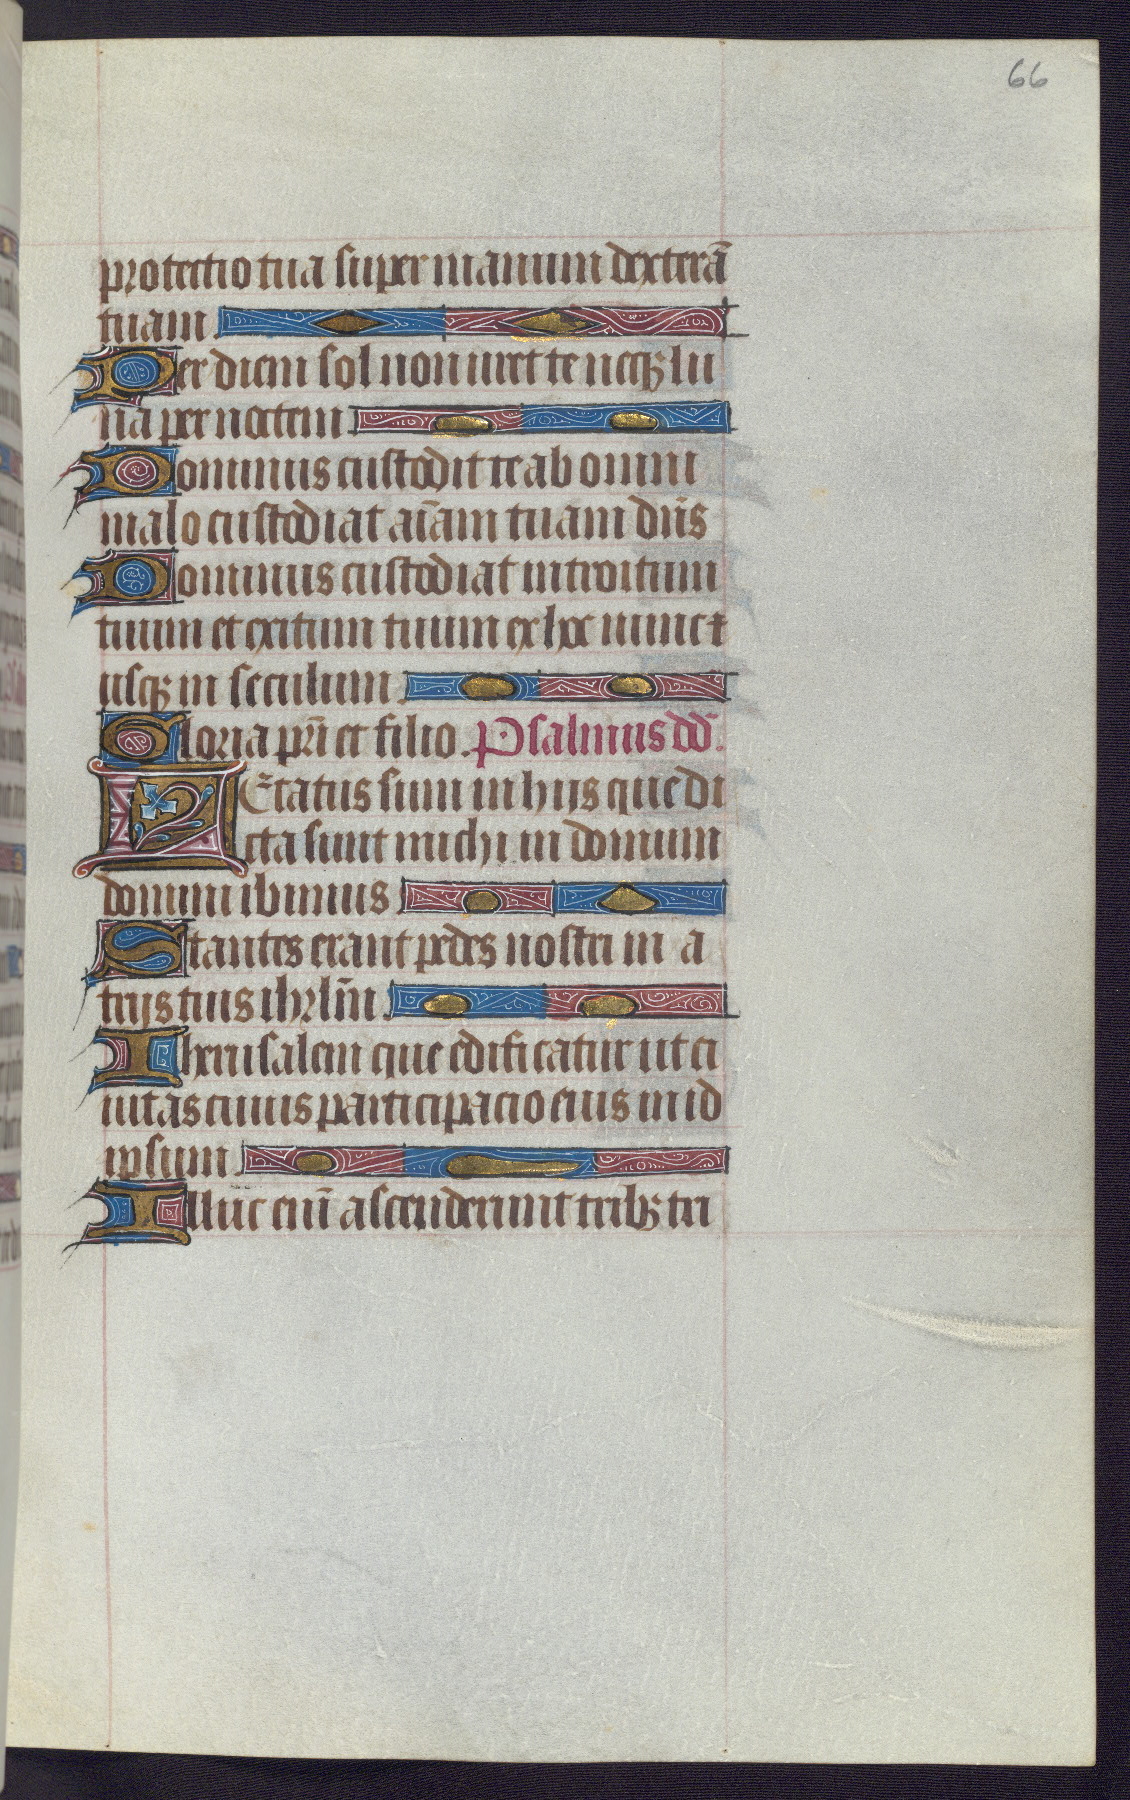 66
protectio tua super manum dexterā
tuam
Per diem sol non uret te neqꝫ lu
na per noctem
Dominus custodit te ab omni
malo custodiat aīam tuam dn̄s
Dominus custodiat introitum
tuum et exitum tuum ex hoc nunc ⁊
usqꝫ in seculum
Gloria pr̄i et filio. Psalmus dd̄.
LEtatus sum in hijs que di
cta sunt michi in domum
domini ibimus
Stantes erant pedes nostri in a
trijs tuis ihrlm̄
Iherusalem que edificatur ut ci
uitas cuius participacio eius in id
ipsum
Illuc eni̅ ascenderunt tribꝫ tri